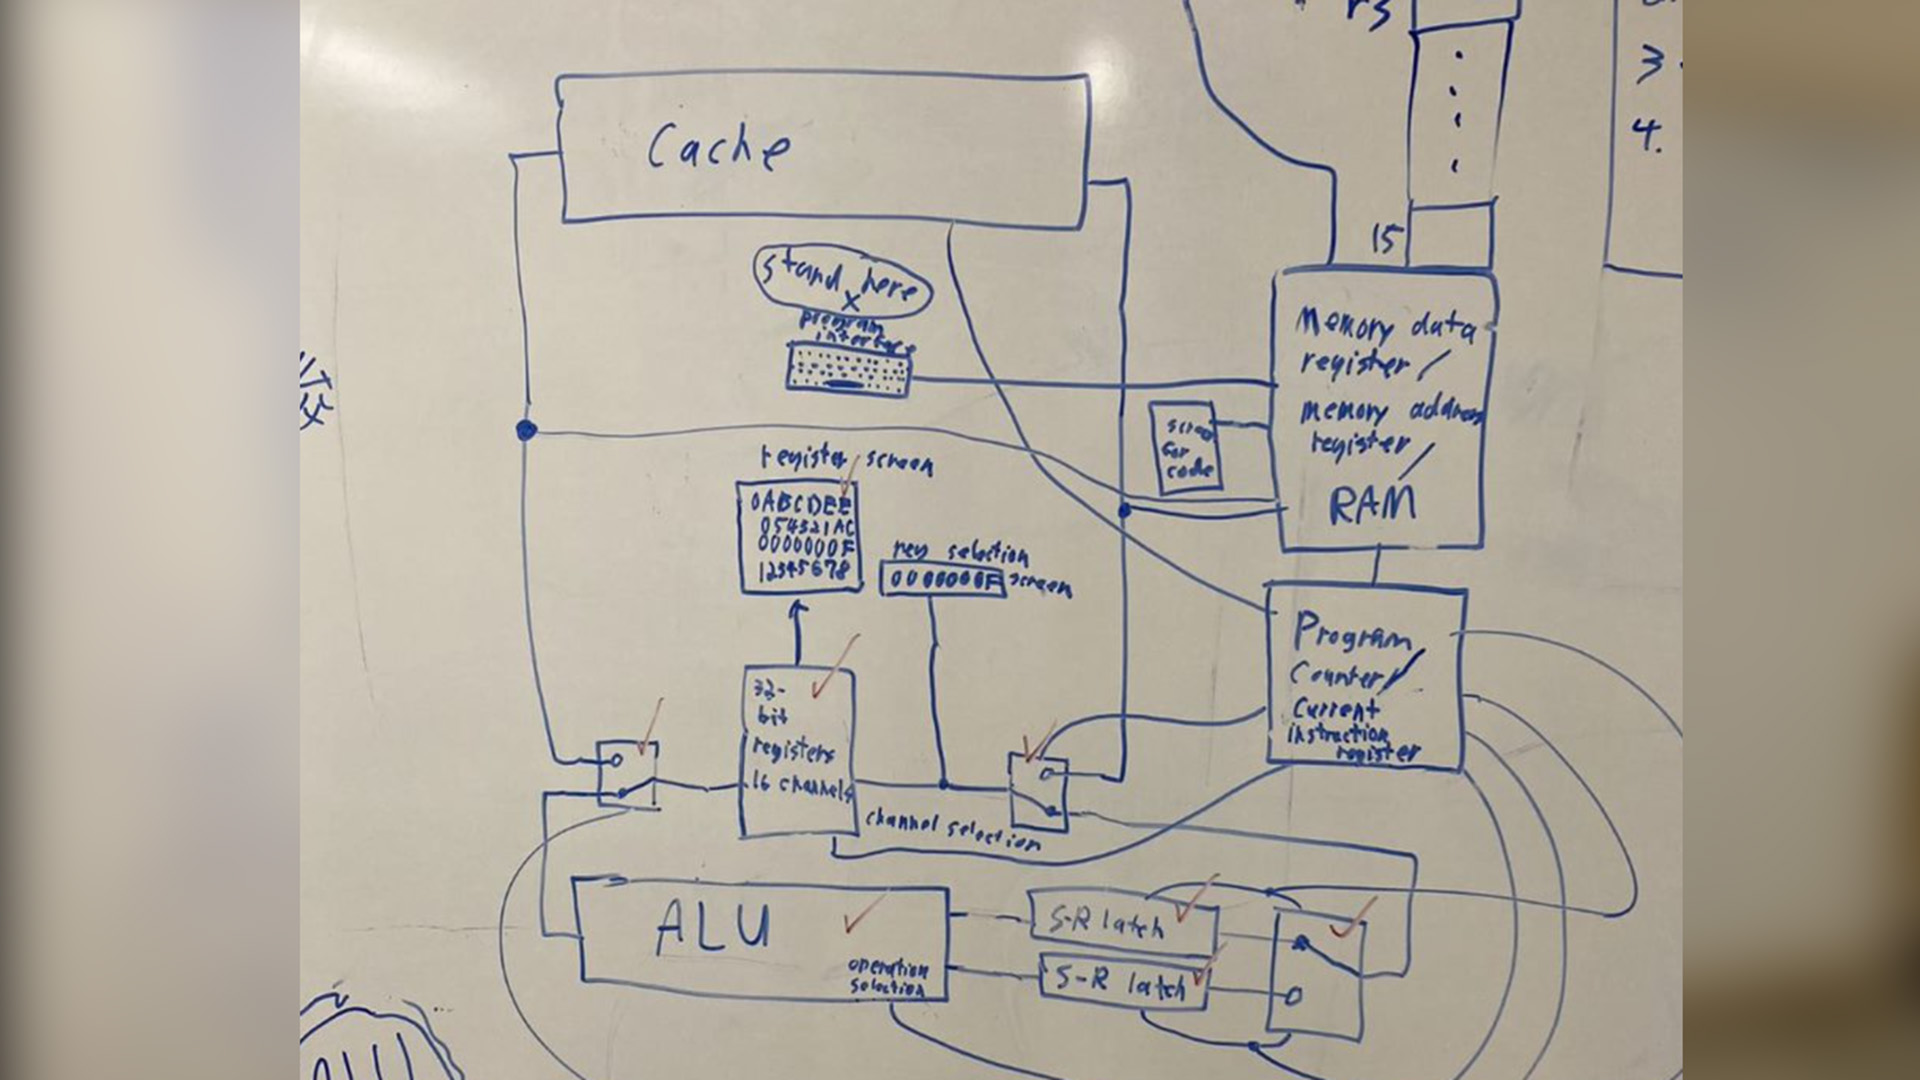 r3
3
4.
Cache
15
stand here
x
program
interface
Memory data
register/
memory address
register/
RAM
screen
for
code
register screen
0ABCDEE
054321AC
0000000F
12345678
reg selection
screen
0000000F
Program
Counter/
Current
instruction
register
32-
bit
registers
16 channels
channel selection
ALU
operation
selection
S-R latch
S-R latch
ALU